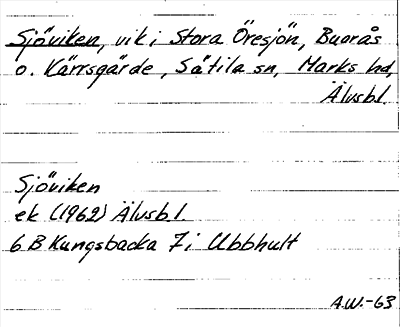 Sjöviken, vik i Stora Öresjön, Buarås
o. Kärrsgärde, Sätila sn, Marks hd,
Älvsbl.
Sjöviken
ek (1962) Älvsb l.
6 B Kungsbacka 7 i Ubbhult
A.W.-63